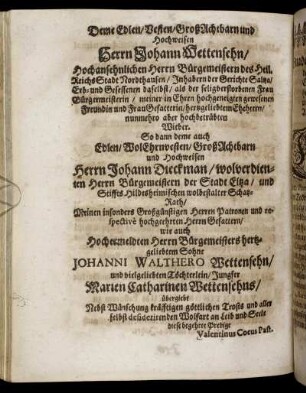 Deme Edlen/ Vesten/ GroßAchtbarn und
Hochweisen
Herrn Johann Wettensehn/
Hochansehnlichen Herrn Bürgemeistern des Heil.
Reichs Stadt Northausen/ Inhabern der Gerichte Saltza/
Erb- und Gesessenen daselbst/ als der seligverstorbenen Frau
Bürgemeisterin/ meiner in Ehren hochgeneigten gewesenen
Freundin und FrauGefatterin/ hertzgeliebtem Eheherrn/
nunmehro aber hochbetrübten
Witber.
So dann deme auch
Edlen/ WolEhrnvesten/ GroßAchtbarn
und Hochweisen
Herrn Johann Dieckman/ wolverdien-
ten Herrn Bürgemeistern der Stadt Eltza/ und
Stiffts Hildesheimischen wolbestalter Schatz-
Rath/
Meinen insonders Großgünstigen Herren Patronen und re-
spectivè hochgeehrten Herrn Gefattern/
wie auch
Hochermeldten Herrn Bürgemeisters hertz-
geliebtem Sohne
JOHANNI WALTHERO Wettensehn/
und vielgeliebten Töchterlein/ Jungfer
Marien Catharinen Wettensehns/
übergiebt
Nebst Wünschung kräfftigen göttlichen Trosts und aller
selbst desiderirenden Wolfart an Leib und Seele
diese begehrte Predigt
Valentinus Past.